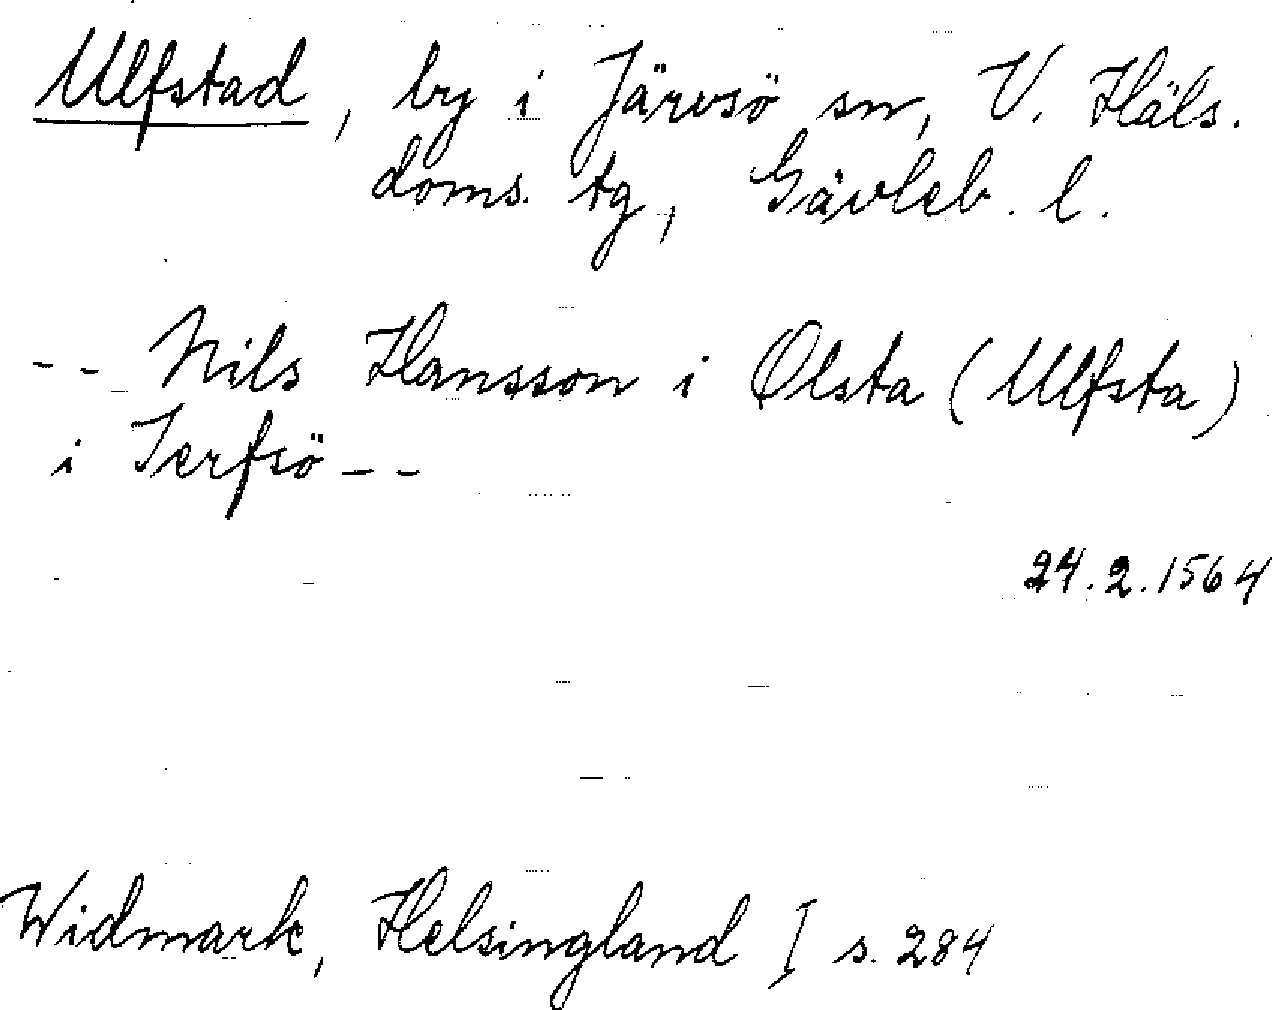 Ulfstad, by i Järvsö sn, V. Häls.
doms. tg, Gävleb. l.
-- Nils Hansson i Ølsta (Ulfsta)
i Jerfsö --
24.2.1564
Widmark, Helsingland I s. 284